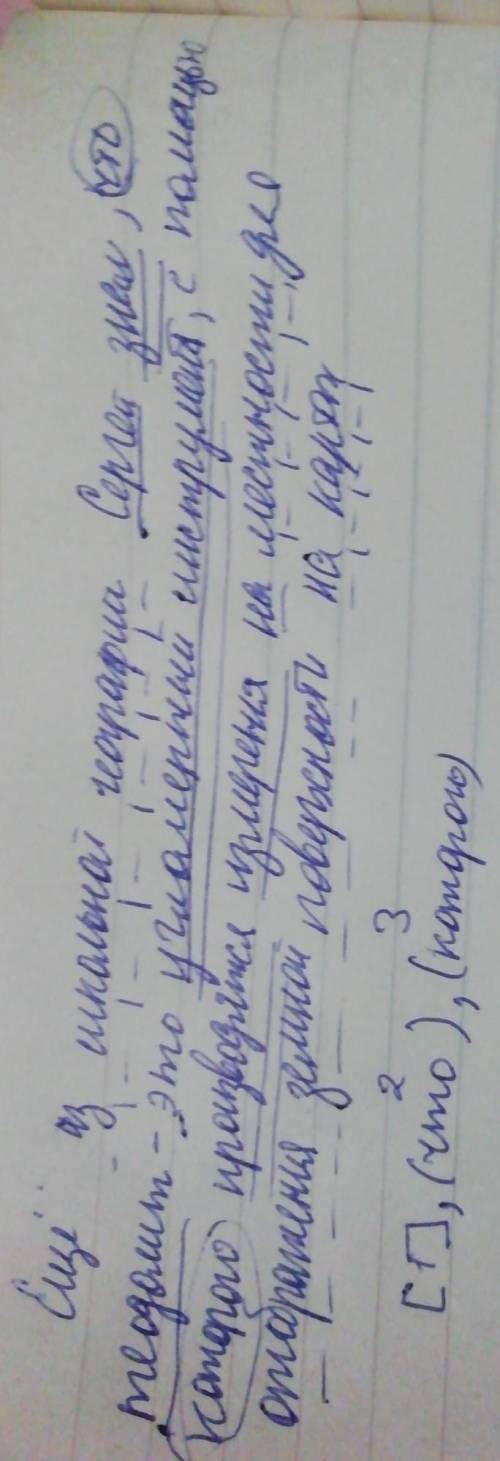 Ещё из школьной географии Сергей знал, что
теодолит - это угломерный инструмент, с помощью
которого производятся измерения на местности для
отображения земной поверхности на картах
[1], (что²), (которого³)